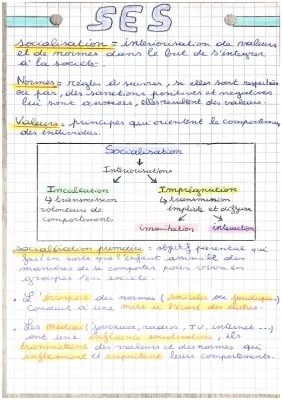 SES
socialisation = interiorisation de valeurs
et de normes dans le but de s'integrer
à la societe.
Normes = règles à suivres, si elles sont respectées
ou pas, des sanctions positives et negatives
lui sont associées, elles des valeurs.
Valeurs = principes qui orientent le comportement
des individus.
Socialisation
Interiorisations
Inculcation
Imprégnation
↳ transmission
↳ transmission
volontaire de
implicite et diffuse
comportements
imitation
interaction
socialisation primaire = objectif parental qui
fait en sorte que l'enfant des
manières de se comporter pour vivre en
groupe / en société.
• L' des normes (sociales ou juridiques)
Conduit à une mise à l'écart des autres.
• Les médias (journaux, radios, TV, internet ...)
ont une influence socialisatrice, ils
transmettent des valeurs et des normes qui
influencent et leurs comportements.